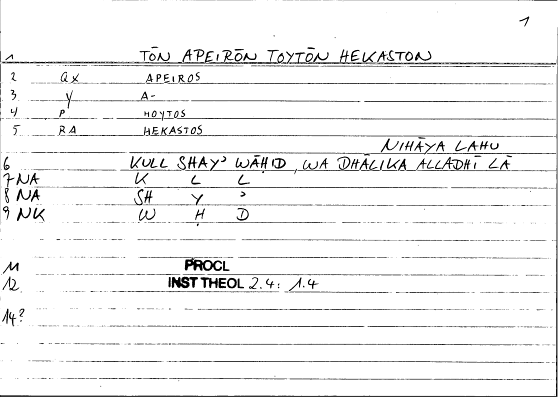 1
1 TŌN APEIRŌN TOYTŌN HEKASTON
2 ax APEIROS
3 y A-
4 P HOYTOS
5 RA HEKASTOS
NIHĀYA LAHU
6 KULL SHAYʾ WĀḤID, WA DHĀLIKA ALLADHĪ LĀ
7 NA K L L
8 NA SH Y ʾ
9 NK W Ḥ D
11 PROCL
12 INST THEOL 2.4: 1.4
14?